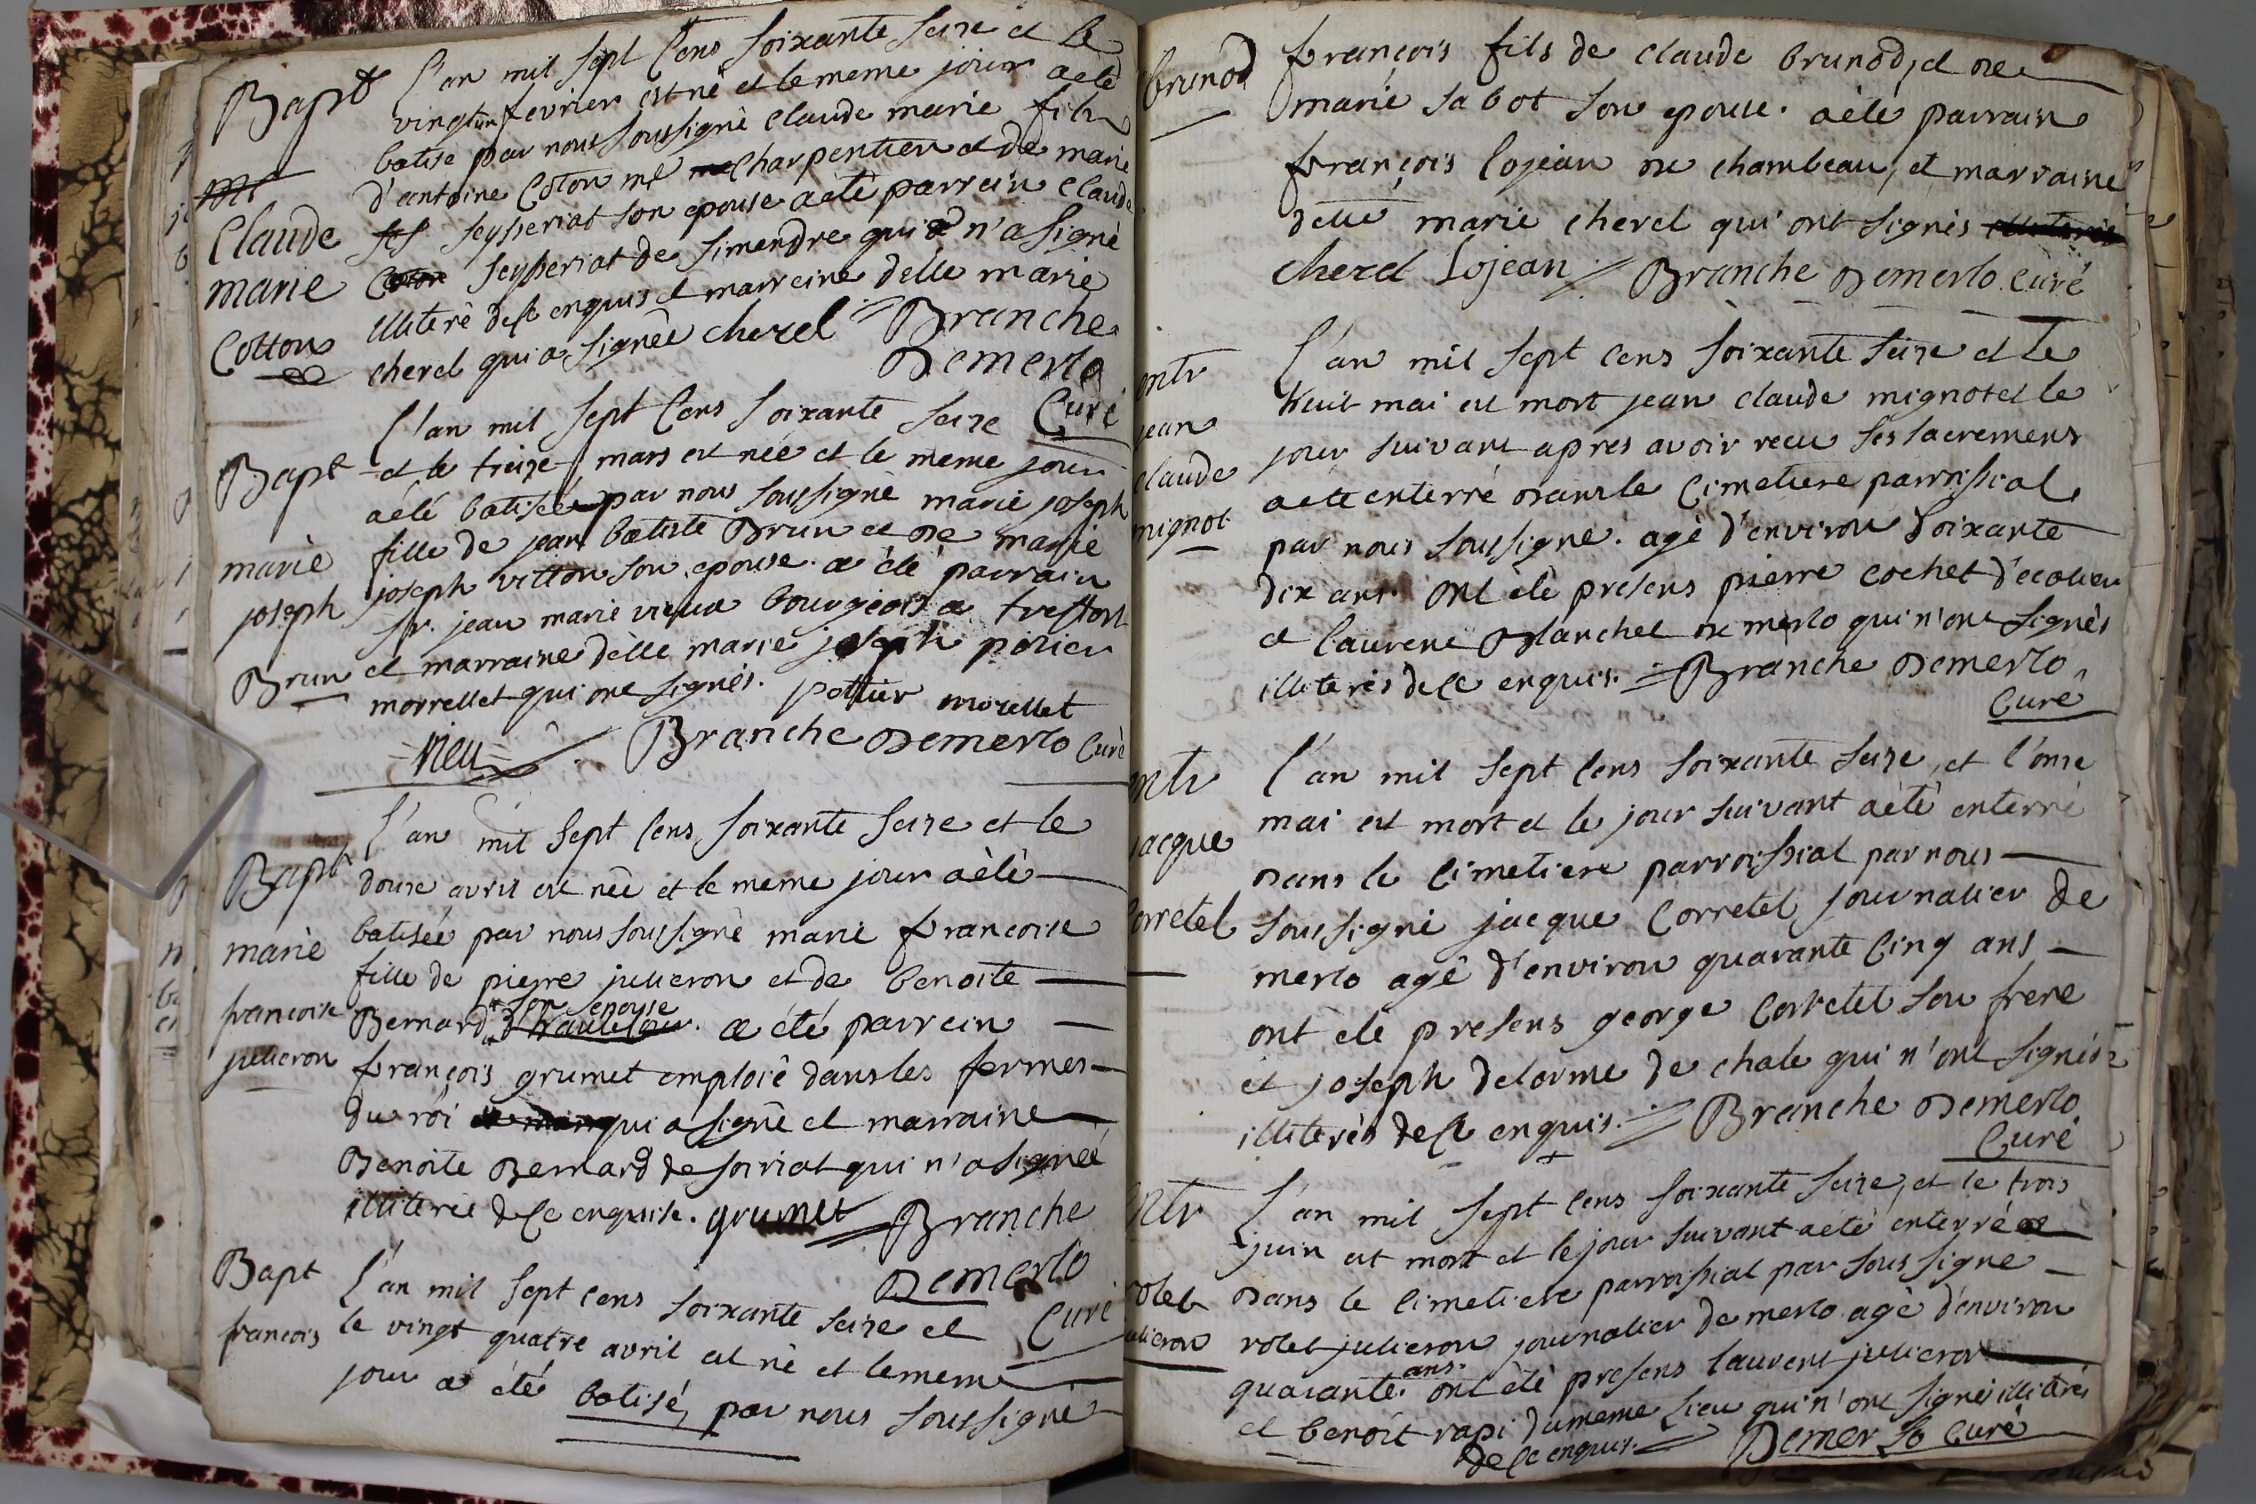 Bapt
Claude
marie
Cotton
L'an mil sept Cens soixante seize et le
vingt un fevrier est né et le meme jour a été
batisé par nous soussigné claude marie fils
d'antoine Coton me charpentier et de marie
seyseriat son epouse a eté parrein claude
seyseriat de simendre qui n'a signé
illiteré de ce enquis et marreine delle marie
cherel qui a signée cherel Branche
Demerlo
Curé
Bapt
marie
joseph
Brun
L'an mil sept Cens soixante seize
et le treize mars est née et le meme jour
a été batisée par nous soussigné marie joseph
fille de jean batiste Brun et de marie
joseph vitton son epouse. a été parrain
sr. jean marie vieux bourgeois a treffort
et marraine delle marie joseph potier
morrellet qui ont signés. pottier morellet
vieu Branche Demerlo Curé
Bapt
marie
francoise
julieron
L'an mil sept Cens soixante seize et le
douze avril est née et le meme jour a été
batisée par nous soussigné marie francoise
fille de pierre julieron et de benoite
son epouse
Bernard a été parrein
françois grumet emploié dans les fermes
du roi qui a signé et marraine
Benoite Bernard de soiriat qui n'a signée
illiterée de ce enquise. grumet Branche
Demerlo
Curé
Bapt
francois
L'an mil sept cens soixante seize et
le vingt quatre avril est né et le meme
jour a été batisé, par nous soussigné
brunod
françois fils de claude brunod, et de
marie sabot son epouse. a été parrain
françois lojean de chambeau, et marraine
delle marie cherel qui ont signés
cherel Lojean Branche Demerlo Curé
ntr
jean
claude
mignot
L'an mil sept cens soixante seize et le
huit mai est mort jean claude mignot et le
jour suivant apres avoir recu ses sacremens
a été enterré dans le Cimetiere parroissial
par nous soussigné. agé d'environ soixante
dix ans. ont été presens pierre cochet d'ecolieu
et laurent Blanchet de merlo qui n'ont signés
illiterés de ce enquis. Branche Demerlo
Curé
ntr
jacque
Corretel
L'an mil sept Cens soixante seize, et l'onze
mai est mort et le jour suivant a été enterré
dans le Cimetiere parroissial par nous
soussigné jacque Corretel journalier de
merlo agé d'environ quarante Cinq ans
ont été presens george Corretel son frere
et joseph delorme de chale qui n'ont signés
illiterés de ce enquis. Branche Demerlo
Curé
ntr
rolet
julieron
L'an mil sept cens soixante seize, et le trois
juin est mort et le jour suivant a été enterré
dans le Cimetiere parroissial par soussigné
rolet julieron journalier de merlo agé d'environ
quarante ans. ont été presens laurent julieron
et benoit rapi du meme lieu qui n'ont signé illiterés
de ce enquis. Demerlo Curé